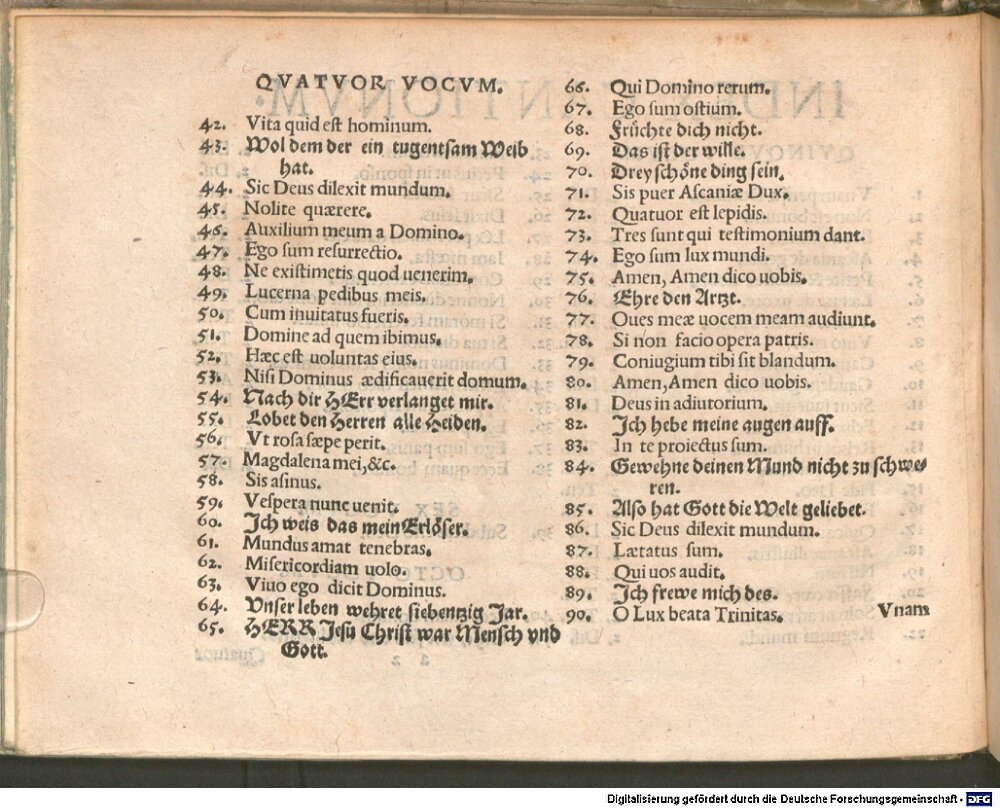 QVATVOR VOCVM.
42. Vita quid eſt hominum.
43. Wol dem der ein tugentſam Weib
hat.
44. Sic Deus dilexit mundum.
45. Nolite quærere.
46. Auxilium meum a Domino.
47. Ego ſum reſurrectio.
48. Ne exiſtimetis quod uenerim.
49. Lucerna pedibus meis.
50. Cum inuitatus fueris.
51. Domine ad quem ibimus.
52. Hæc eſt uoluntas eius.
53. Niſi Dominus ædificauerit domum.
54. Nach dir HErr verlanget mir.
55. Lobet den Herren alle Heiden.
56. Vt roſa ſæpe perit.
57. Magdalena mei,&c.
58. Sis aſinus.
59. Veſpera nunc uenit.
60. Ich weis das mein Erlöſer.
61. Mundus amat tenebras.
62. Miſericordiam uolo.
63. Viuo ego dicit Dominus.
64. Vnſer leben wehret ſiebentzig Jar.
65. HERR Jeſu Chriſt war Menſch vnd
Gott.
66. Qui Domino rerum.
67. Ego ſum oſtium.
68. Früchte dich nicht.
69. Das iſt der wille.
70. Drey ſchöne ding ſein.
71. Sis puer Aſcaniæ Dux.
72. Quatuor eſt lepidis.
73. Tres ſunt qui teſtimonium dant.
74. Ego ſum lux mundi.
75. Amen, Amen dico uobis.
76. Ehre den Artzt.
77. Oues meæ uocem meam audiunt.
78. Si non facio opera patris.
79. Coniugium tibi ſit blandum.
80. Amen, Amen dico uobis.
81. Deus in adiutorium.
82. Ich hebe meine augen auff.
83. In te proiectus ſum.
84. Gewehne deinen Mund nicht zu ſchwe⸗
ren.
85. Alſo hat Gott die Welt geliebet.
86. Sic Deus dilexit mundum.
87. Lætatus ſum.
88. Qui uos audit.
89. Ich frewe mich des.
90. O Lux beata Trinitas.
Vnam
Digitalisierung gefördert durch die Deutsche Forschungsgemeinschaft - DFG